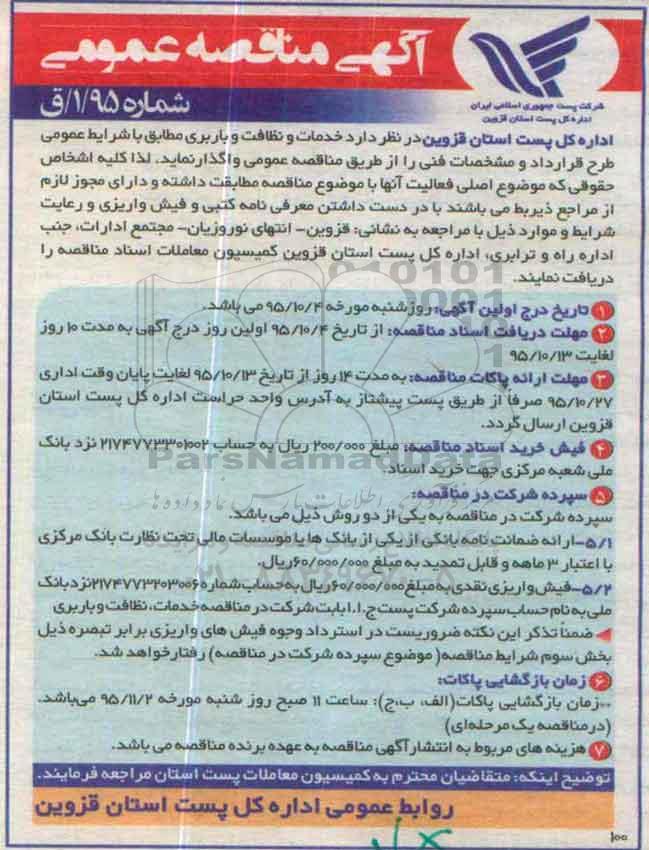 آگهی مناقصه عمومی
شرکت پست جمهوری اسلامی ایران
اداره کل پست استان قزوین
شماره ۱/۹۵/ق
اداره کل پست استان قزوین در نظر دارد خدمات و نظافت و باربری مطابق با شرایط عمومی
طرح قرارداد و مشخصات فنی را از طریق مناقصه عمومی واگذار نماید. لذا کلیه اشخاص
حقوقی که موضوع اصلی فعالیت آنها با موضوع مناقصه مطابقت داشته و دارای مجوز لازم
از مراجع ذیربط می باشند با در دست داشتن معرفی نامه کتبی و فیش واریزی و رعایت
شرایط و موارد ذیل با مراجعه به نشانی: قزوین- انتهای نوروزیان- مجتمع ادارات، جنب
اداره راه و ترابری، اداره کل پست استان قزوین کمیسیون معاملات اسناد مناقصه را
دریافت نمایند.
۱ تاریخ درج اولین آگهی: روز شنبه مورخه ۹۵/۱۰/۴ می باشد.
۲ مهلت دریافت اسناد مناقصه: از تاریخ ۹۵/۱۰/۴ اولین روز درج آگهی به مدت ۱۰ روز
لغایت ۹۵/۱۰/۱۳
۳ مهلت ارائه پاکات مناقصه: به مدت ۱۴ روز از تاریخ ۹۵/۱۰/۱۳ لغایت پایان وقت اداری
۹۵/۱۰/۲۷ صرفاً از طریق پست پیشتاز به آدرس واحد حراست اداره کل پست استان
قزوین ارسال گردد.
۴ فیش خرید اسناد مناقصه: مبلغ ۲۰۰/۰۰۰ ریال به حساب ۲۱۷۴۷۷۳۳۰۱۰۰۲ نزد بانک
ملی شعبه مرکزی جهت خرید اسناد.
ParsNamadData
۵ سپرده شرکت در مناقصه:
سپرده شرکت در مناقصه به یکی از دو روش ذیل می باشد.
۵/۱-ارائه ضمانت نامه بانکی از یکی از بانک ها یا موسسات مالی تحت نظارت بانک مرکزی
با اعتبار ۳ ماهه و قابل تمدید به مبلغ ۶۰/۰۰۰/۰۰۰ ریال.
۵/۲-فیش واریزی نقدی به مبلغ ۶۰/۰۰۰/۰۰۰ ریال به حساب شماره ۲۱۷۴۷۷۳۲۰۳۰۰۶ نزد بانک
ملی به نام حساب سپرده شرکت پست ج.ا.ا بابت شرکت در مناقصه خدمات، نظافت و باربری
ضمناً تذکر این نکته ضروریست در استرداد وجوه فیش های واریزی برابر تبصره ذیل
بخش سوم شرایط مناقصه( موضوع سپرده شرکت در مناقصه) رفتار خواهد شد.
۶ زمان بازگشایی پاکات:
**زمان بازگشایی پاکات(الف، ب،ج): ساعت ۱۱ صبح روز شنبه مورخه ۹۵/۱۱/۲ می‌باشد.
(در مناقصه یک مرحله‌ای)
۷ هزینه های مربوط به انتشار آگهی مناقصه به عهده برنده مناقصه می باشد.
توضیح اینکه: متقاضیان محترم به کمیسیون معاملات پست استان مراجعه فرمایند.
روابط عمومی اداره کل پست استان قزوین
۱۰۰